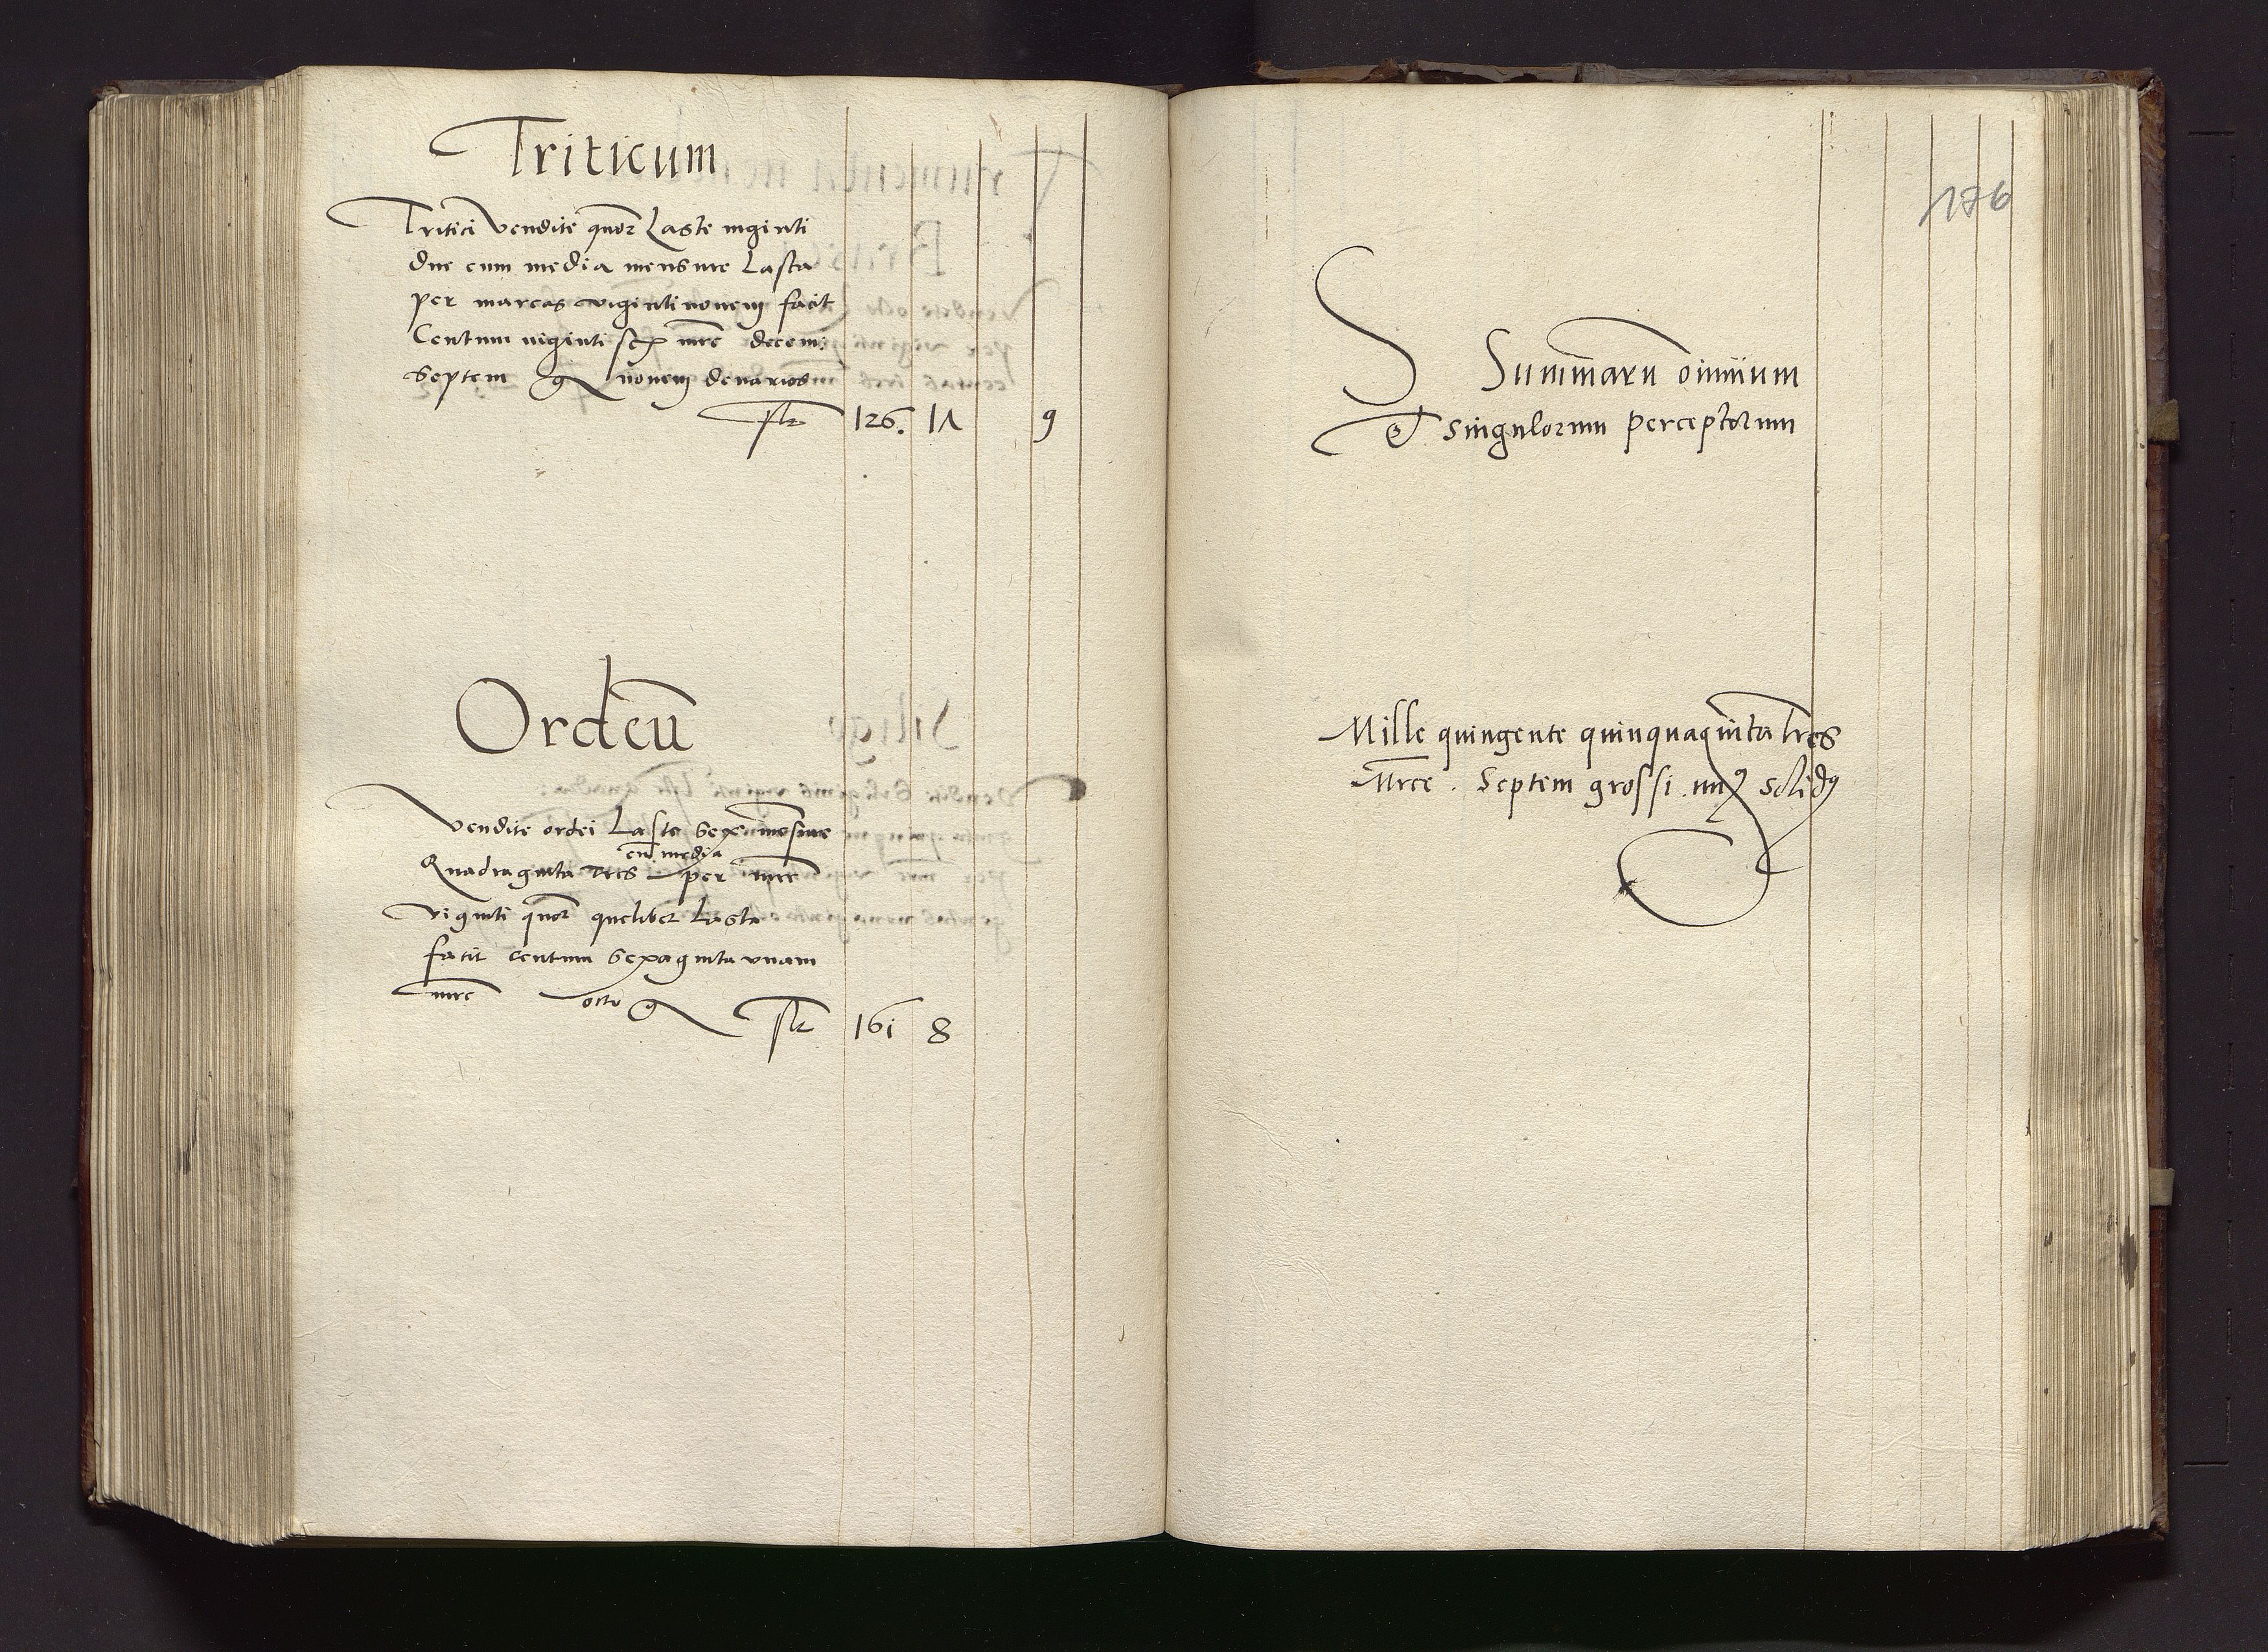 Triticum
Tritici vendite quor Laste viginti
due cum media mensure Lasta
per marcas viginti novem facit
Centum viginti sex mrc decem:
septem g novem denarios
flr 126. 17 9
Ordeū
Vendite ordei Laste sex mēsure
cū media
Quadraginta tres per mrc
viginti quor quelibet Lasta
facit centum sexaginta unam
mrc octo g flr 161 8
176
S Summarū omnium
et singulorum perceptorum
Mille quingente quinquaginta tres
Mrce . Septem grossi . un9 solid9